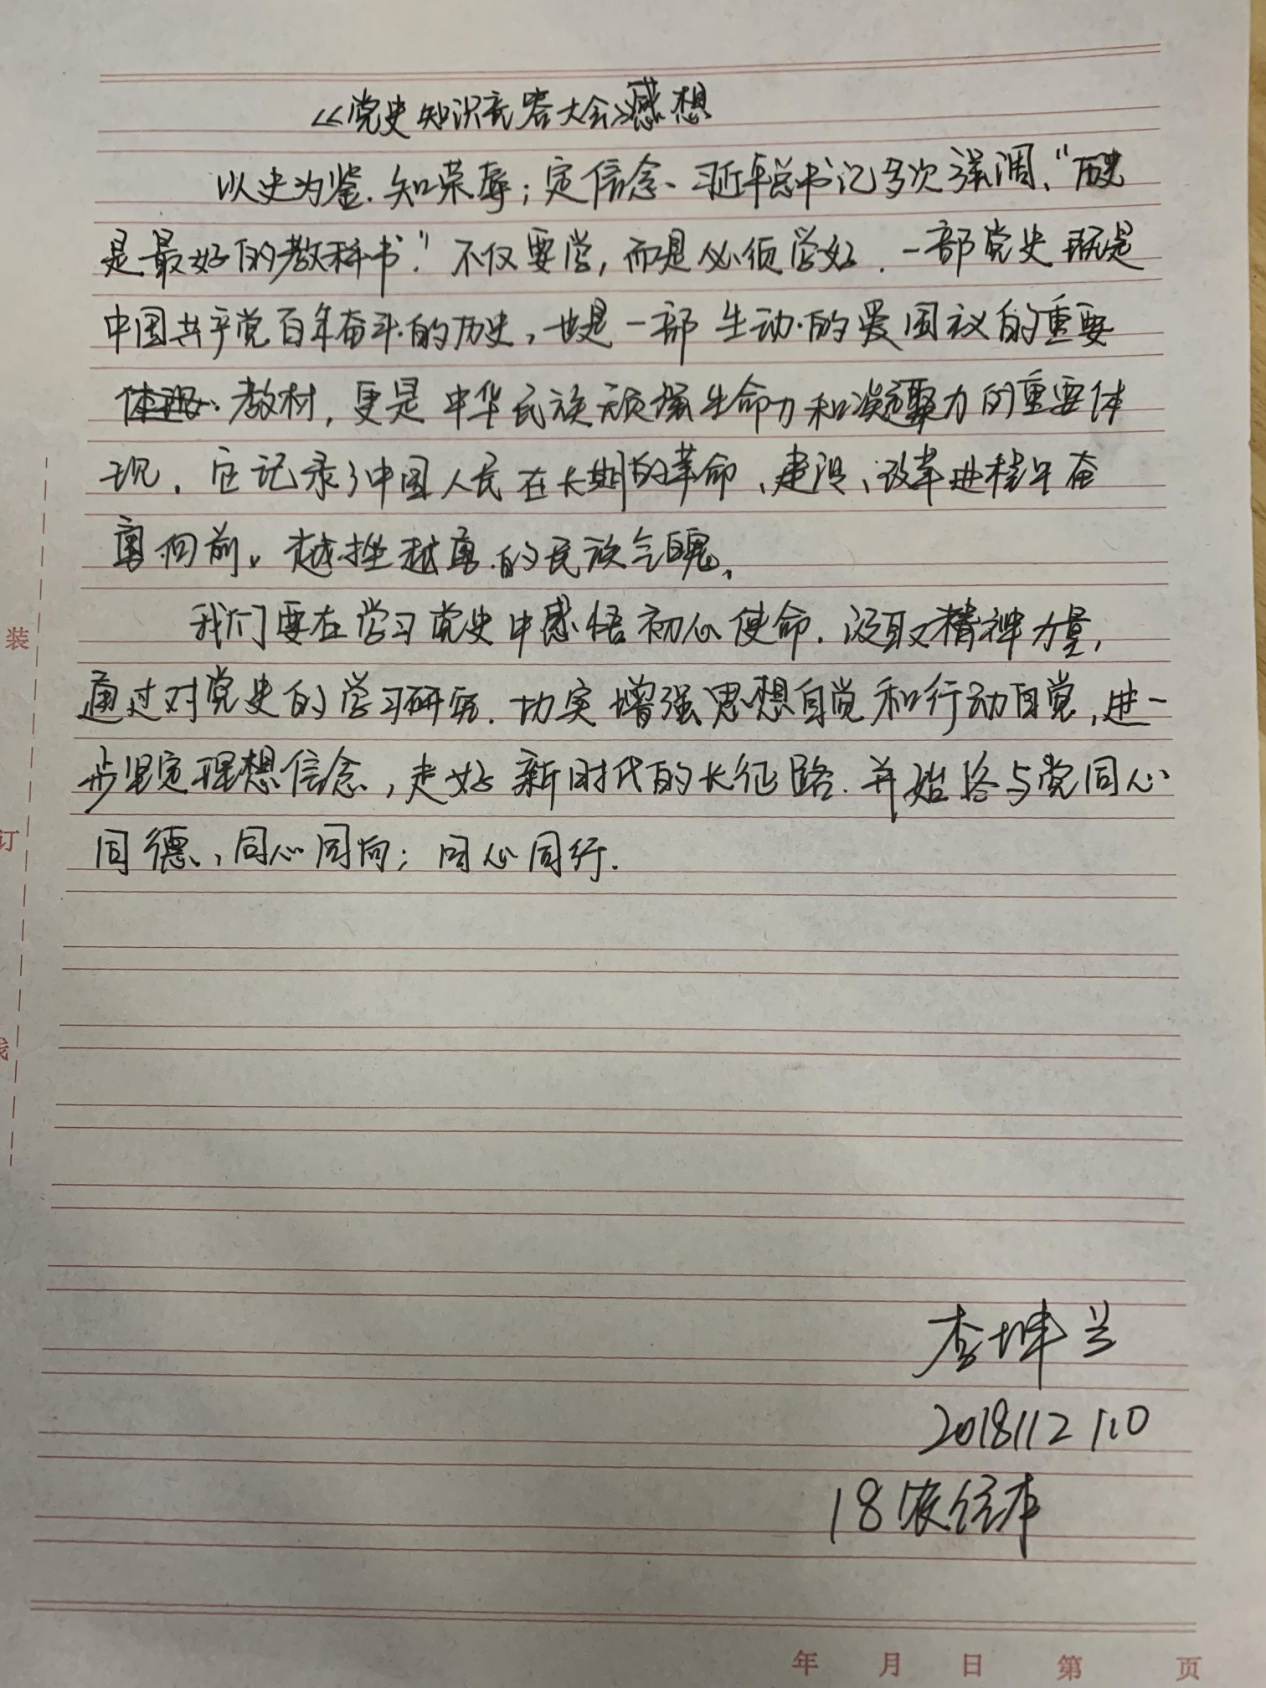 《党史知识竞答大会》感想
以史为鉴.知荣辱;定信念、习近平总书记多次强调、“历史
是最好的教科书”.不仅要学,而是必须学好.一部党史既是
中国共产党百年奋斗的历史,也是一部生动的爱国议的重要
体现 教材,更是中华民族顽强生命力和凝聚力的重要体
现.它记录了中国人民在长期的革命、建设、改革进程中奋
勇向前。越挫越勇的民族气魄、
我们要在学习党史中感悟初心使命.汲取精神力量,
通过对党史的学习研究.切实增强思想自觉和行动自觉,进一
步坚定理想信念,走好新时代的长征路.并始终与党同心
同德、,同心同向;同心同行.
装
订
线
李坤兰
2018112110
18农信本
年 月 日 第 页